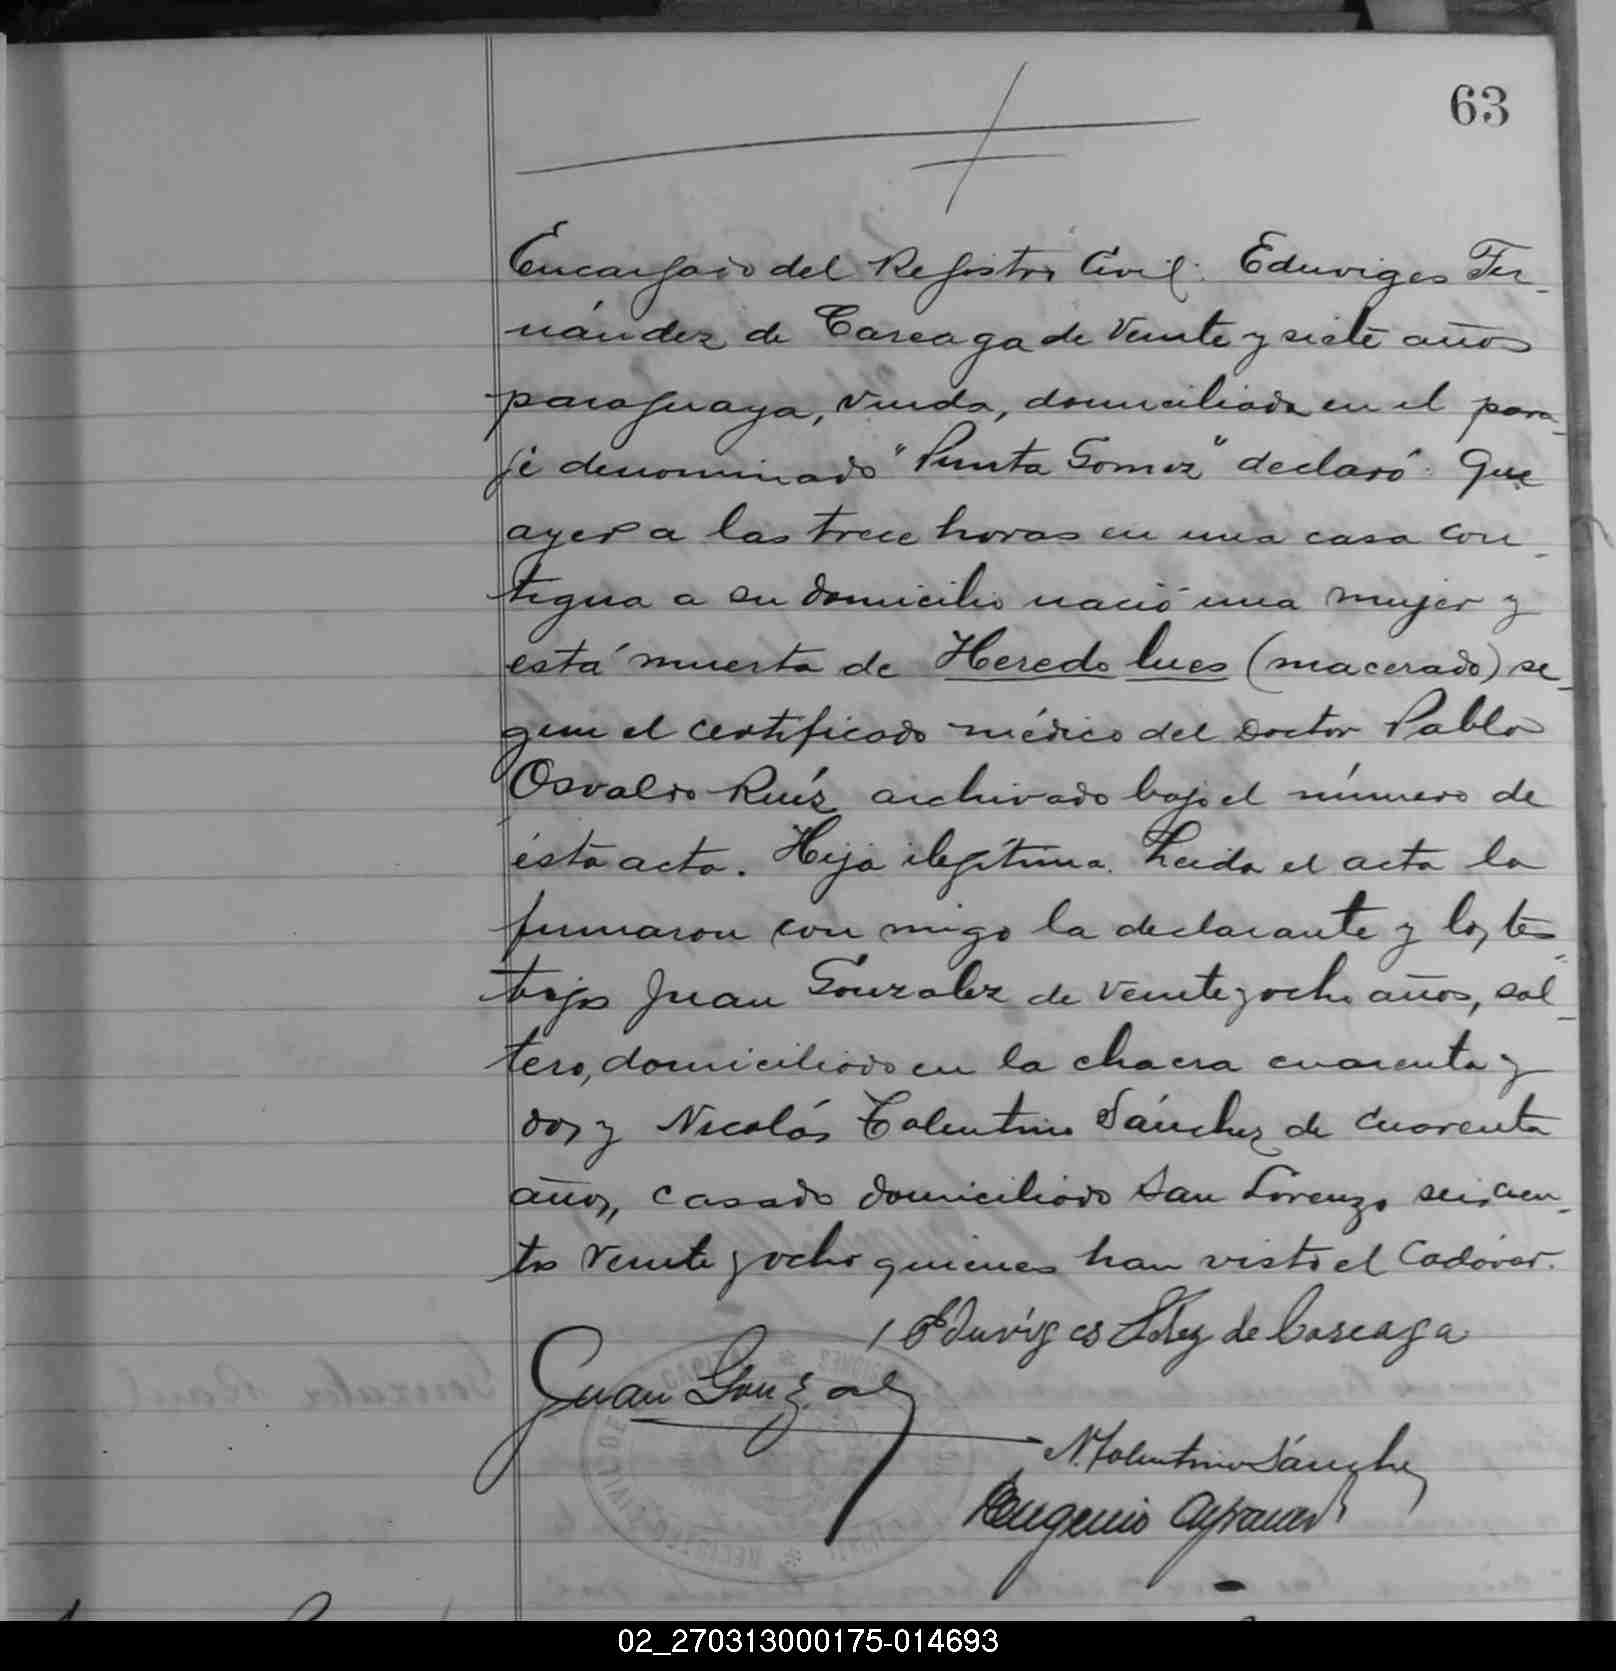 63
Encargado del Registro Civil. Eduviges Fer-
nández de Careaga de veinte y siete años
paraguaya, viuda, domiciliada en el para-
je denominado "Punta Gomez" declaró: Que
ayer a las trece horas en una casa con-
tigua a su domicilio nació una mujer y
está muerta de Heredo lues (macerado) se-
gun el certificado médico del Doctor Pablo
Osvaldo Ruíz archivado bajo el número de
ésta acta. Hija ilegítima. Leida el acta la
firmaron con migo la declarante y los tes-
tigos Juan Gonzalez de veinte y ocho años, sol-
tero, domiciliado en la chacra cuarenta y
dos y Nicolás Tolentino Sánchez de cuarenta
años, casado domiciliado San Lorenzo seiscien-
tos veinte y ocho quienes han visto el cadáver.
Eduvíges Fdez de Careaga
Juan Gonzalez
N. Tolentino Sánchez
Eugenio
REGISTRO CIVIL DE
02_270313000175-014693